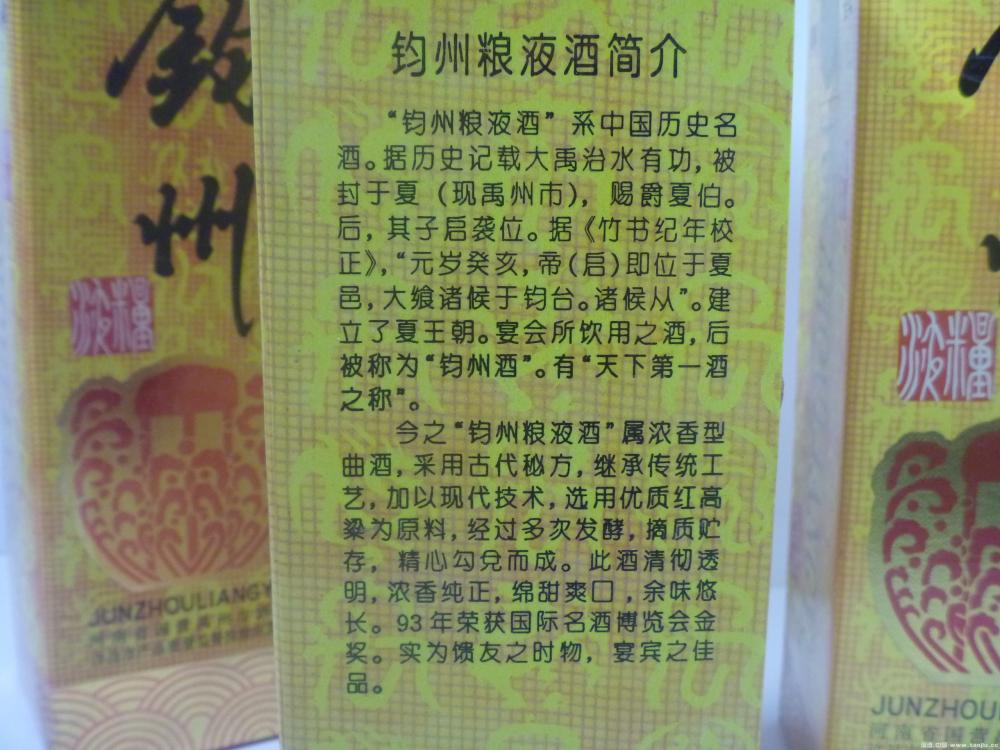 钧州粮液酒简介
“钧州粮液酒”系中国历史名
酒。据历史记载大禹治水有功,被
封于夏(现禹州市),赐爵夏伯。
后,其子启袭位。据《竹书纪年校
正》,“元岁癸亥,帝(启)即位于夏
邑,大飨诸候于钧台。诸候从”。建
立了夏王朝。宴会所饮用之酒,后
被称为“钧州酒”。有“天下第一酒
之称”。
今之“钧州粮液酒”属浓香型
曲酒,采用古代秘方,继承传统工
艺,加以现代技术,选用优质红高
粱为原料,经过多次发酵,摘质贮
存,精心勾兑而成。此酒清彻透
明,浓香纯正,绵甜爽口,余味悠
长。93年荣获国际名酒博览会金
奖。实为馈友之时物,宴宾之佳
品。
州
JUNZHOULIANGY
JUNZHOU